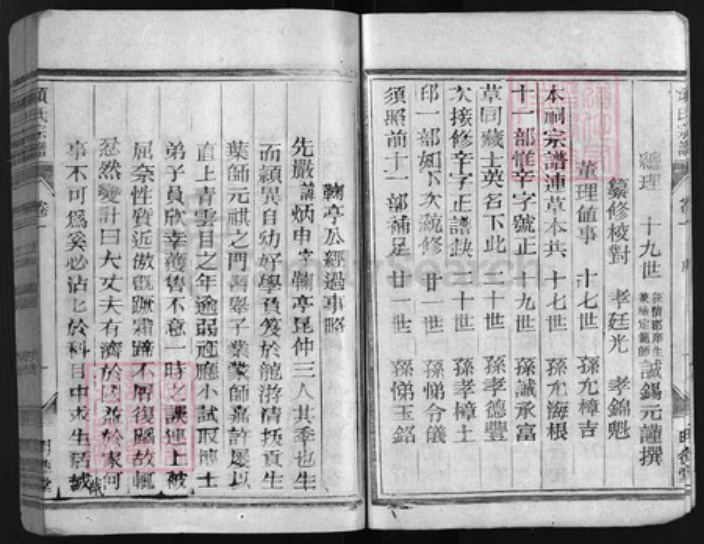 總理 十九世 誠錫元謹撰
纂修校對 孝廷光 孝錦魁
董理值事 十七世 孫允樟吉
本祠宗譜連草本共 十七世 孫允海根
十一部惟辛字號正 十九世 孫誠承富
草同藏士英名下此 二十世 孫孝德豐
次接修辛字正譜缺 二十世 孫孝樟土
印一部如下次續修 廿一世 孫悌令儀
須照前十一部補足 廿一世 孫悌玉銘
鞠亭公經過事略
先嚴諱炳申字鞠亭昆仲三人其季也生
而穎異自幼好學負笈於龍游清拔貢生
葉師元祺之門為舉子業蒙師嘉許屢以
直上青雲目之年逾弱冠應小試取博士
弟子員欣幸獲雋不意一時之誤連上被
屈奈性質近傲既蹶霜蹄不屑復圖故輒
忿然變計曰大丈夫有濟於己益於家何
事不可為奚必沾沾於科目中求生活哉
項氏宗譜 卷一